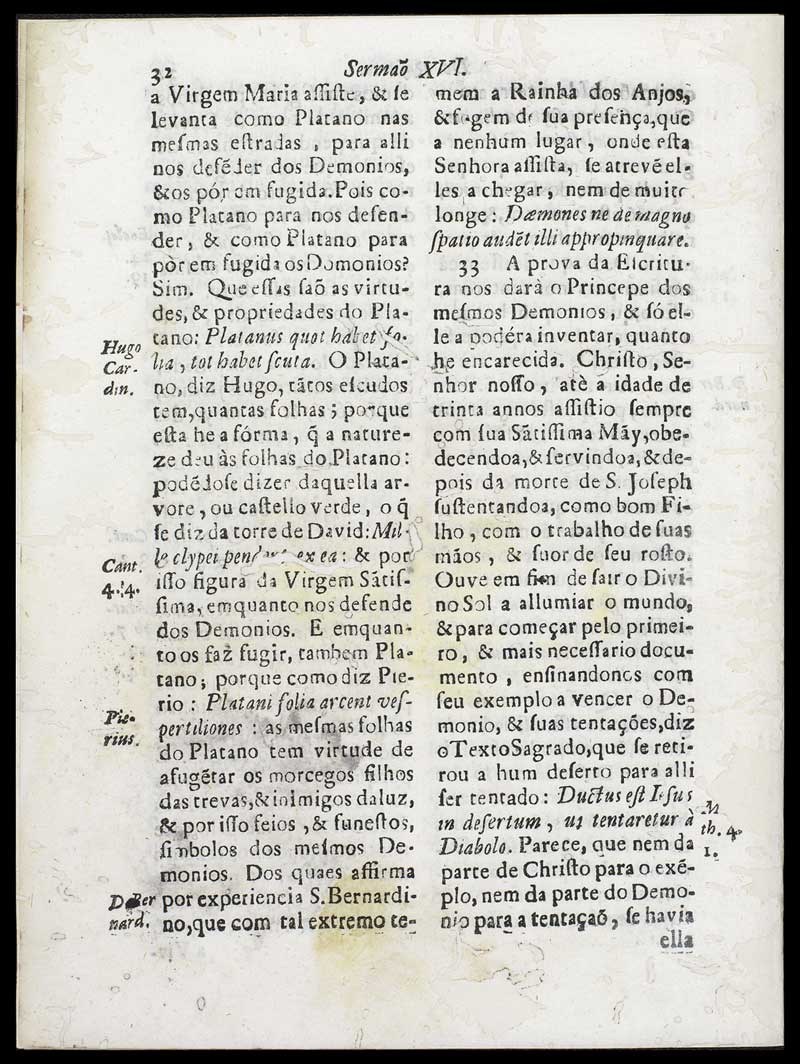 32 Sermaõ XVI.
a Virgem Maria aſſiſte, & ſe
levanta como Platano nas
meſmas eſtradas , para alli
nos defẽder dos Demonios,
&os pór em fugida.Pois co-
mo Platano para nos defen-
der, & como Platano para
pòr em fugida os Domonios?
Sim. Que eſſas ſaõ as virtu-
des, & propriedades do Pla-
tano: Platanus quot habet fo-
lia , tot habet ſcuta. O Plata-
no, diz Hugo, tãtos eſcudos
tem,quantas folhas ; porque
eſta he a fórma, q̃ a nature-
ze deu às folhas do Platano:
podẽdoſe dizer daquella ar-
vore, ou caſtello verde, o q̃
ſe diz da torre de David: Mil-
le clypei pendent ex ea : & por
iſſo figura da Virgem Sãtiſ-
ſima, emquanto nos defende
dos Demonios. E emquan-
to os faz fugir, tambem Pla-
tano; porque como diz Pie-
rio : Platani folia arcent veſ-
pertiliones : as meſmas folhas
do Platano tem virtude de
afugẽtar os morcegos filhos
das trevas,& inimigos da luz,
& por iſſo feios , & funeſtos,
ſimbolos dos meſmos De-
monios. Dos quaes affirma
por experiencia S.Bernardi-
no,que com tal extremo te-
Hugo
Car-
din.
Cant.
4. 4.
Pie-
rius.
Ber
nard.
mem a Rainha dos Anjos,
& fogem de ſua preſença,que
a nenhum lugar, onde eſta
Senhora aſſiſta, ſe atrevẽ el-
les a chegar, nem de muito
longe : Dæmones ne de magno
ſpatio audẽt illi appropinquare.
33 A prova da Eſcritu-
ra nos darà o Princepe dos
meſmos Demonios, & ſó el-
le a podéra inventar, quanto
he encarecida. Chriſto, Se-
nhor noſſo, atè a idade de
trinta annos aſſiſtio ſempre
com ſua Sãtiſſima Mãy,obe-
decendoa,& ſervindoa,& de-
pois da morte de S. Joſeph
ſuſtentandoa, como bom Fi-
lho , com o trabalho de ſuas
mãos, & ſuor de ſeu roſto.
Ouve em fim de ſair o Divi-
no Sol a allumiar o mundo,
& para começar pelo primei-
ro, & mais neceſſario docu-
mento , enſinandonos com
ſeu exemplo a vencer o De-
monio, & ſuas tentações,diz
o Texto Sagrado,que ſe reti-
rou a hum deſerto para alli
ſer tentado : Ductus eſt Ieſus
in deſertum, ut tentaretur à
Diabolo. Parece, que nem da
parte de Chriſto para o exẽ-
plo, nem da parte do Demo-
nio para a tentaçaõ, ſe havia
th. 4.
1.
ella